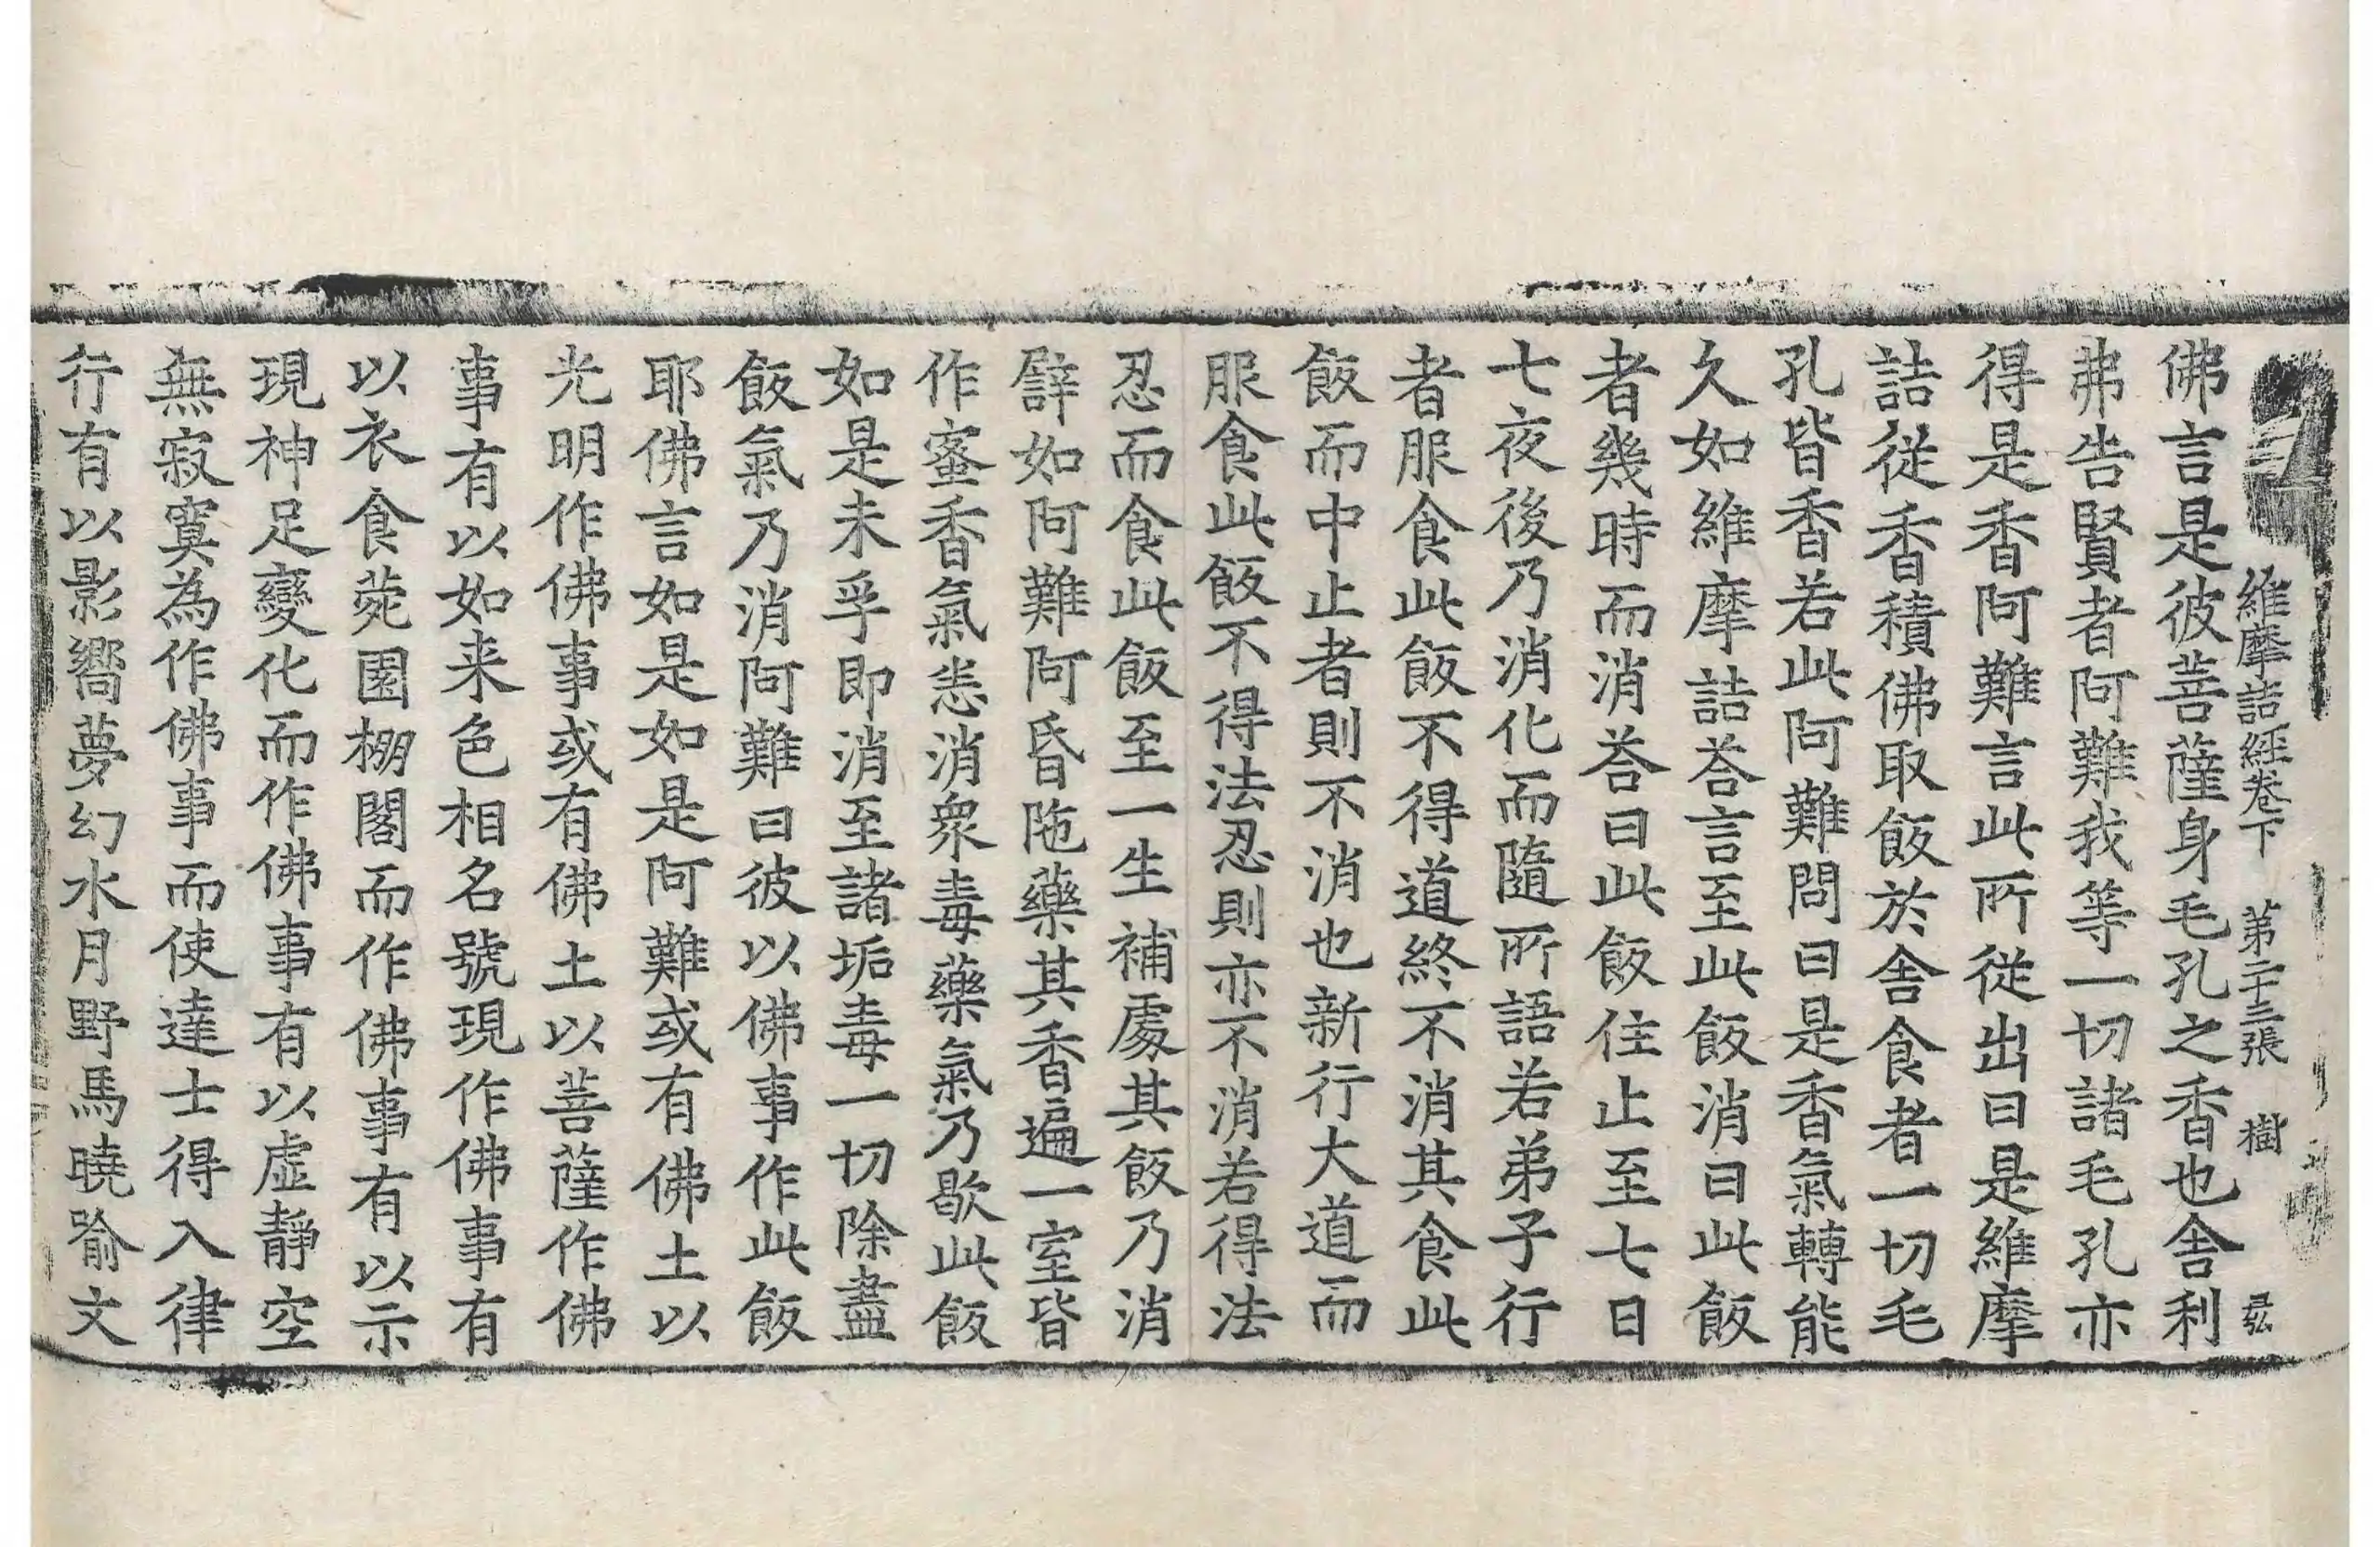 維摩詰經卷下 第二十三張 樹
佛言是彼菩薩身毛孔之香也舎利
弗告賢者阿難我等一切諸毛孔亦
得是香阿難言此所從出曰是維摩
詰從香積佛取飯於舎食者一切毛
孔皆香若此阿難問曰是香氣轉能
久如維摩詰荅言至此飯消曰此飯
者幾時而消荅曰此飯住止至七日
七夜後乃消化而隨所語若弟子行
者服食此飯不得道終不消其食此
飯而中止者則不消也新行大道而
服食此飯不得法忍則亦不消若得法
忍而食此飯至一生補處其飯乃消
譬如阿難阿昏陁藥其香遍一室皆
作蜜香氣悉消衆毒藥氣乃歇此飯
如是未孚即消至諸垢毒一切除盡
飯氣乃消阿難曰彼以佛事作此飯
耶佛言如是如是阿難或有佛土以
光明作佛事或有佛土以菩薩作佛
事有以如来色相名號現作佛事有
以衣食苑園棚閣而作佛事有以示
現神足變化而作佛事有以虛靜空
無寂寞為作佛事而使達士得入律
行有以影嚮夢幻水月野馬曉喻文